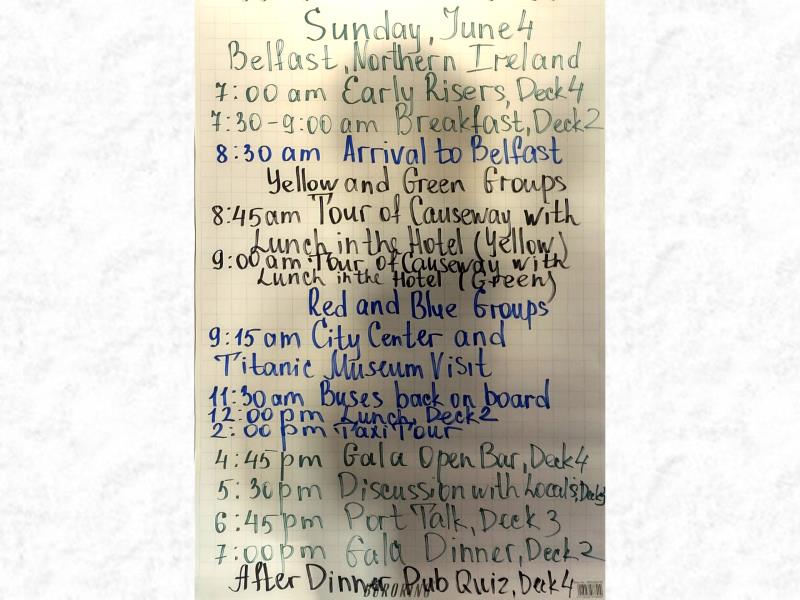 Sunday, June 4
Belfast, Northern Ireland
7:00 am Early Risers, Deck 4
7:30-9:00 am Breakfast, Deck 2
8:30 am Arrival to Belfast
Yellow and Green Groups
8:45 am Tour of Causeway with
Lunch in the Hotel (Yellow)
9:00 am Tour of Causeway with
Lunch in the Hotel (Green)
Red and Blue Groups
9:15 am City Center and
Titanic Museum Visit
11:30 am Buses back on board
12:00 pm Lunch, Deck 2
2:00 pm Taxi Tour
4:45 pm Gala Open Bar, Deck 4
5:30 pm Discussion with Locals, Deck
6:45 pm Port Talk, Deck 3
7:00 pm Gala Dinner, Deck 2
After Dinner Pub Quiz, Deck 4